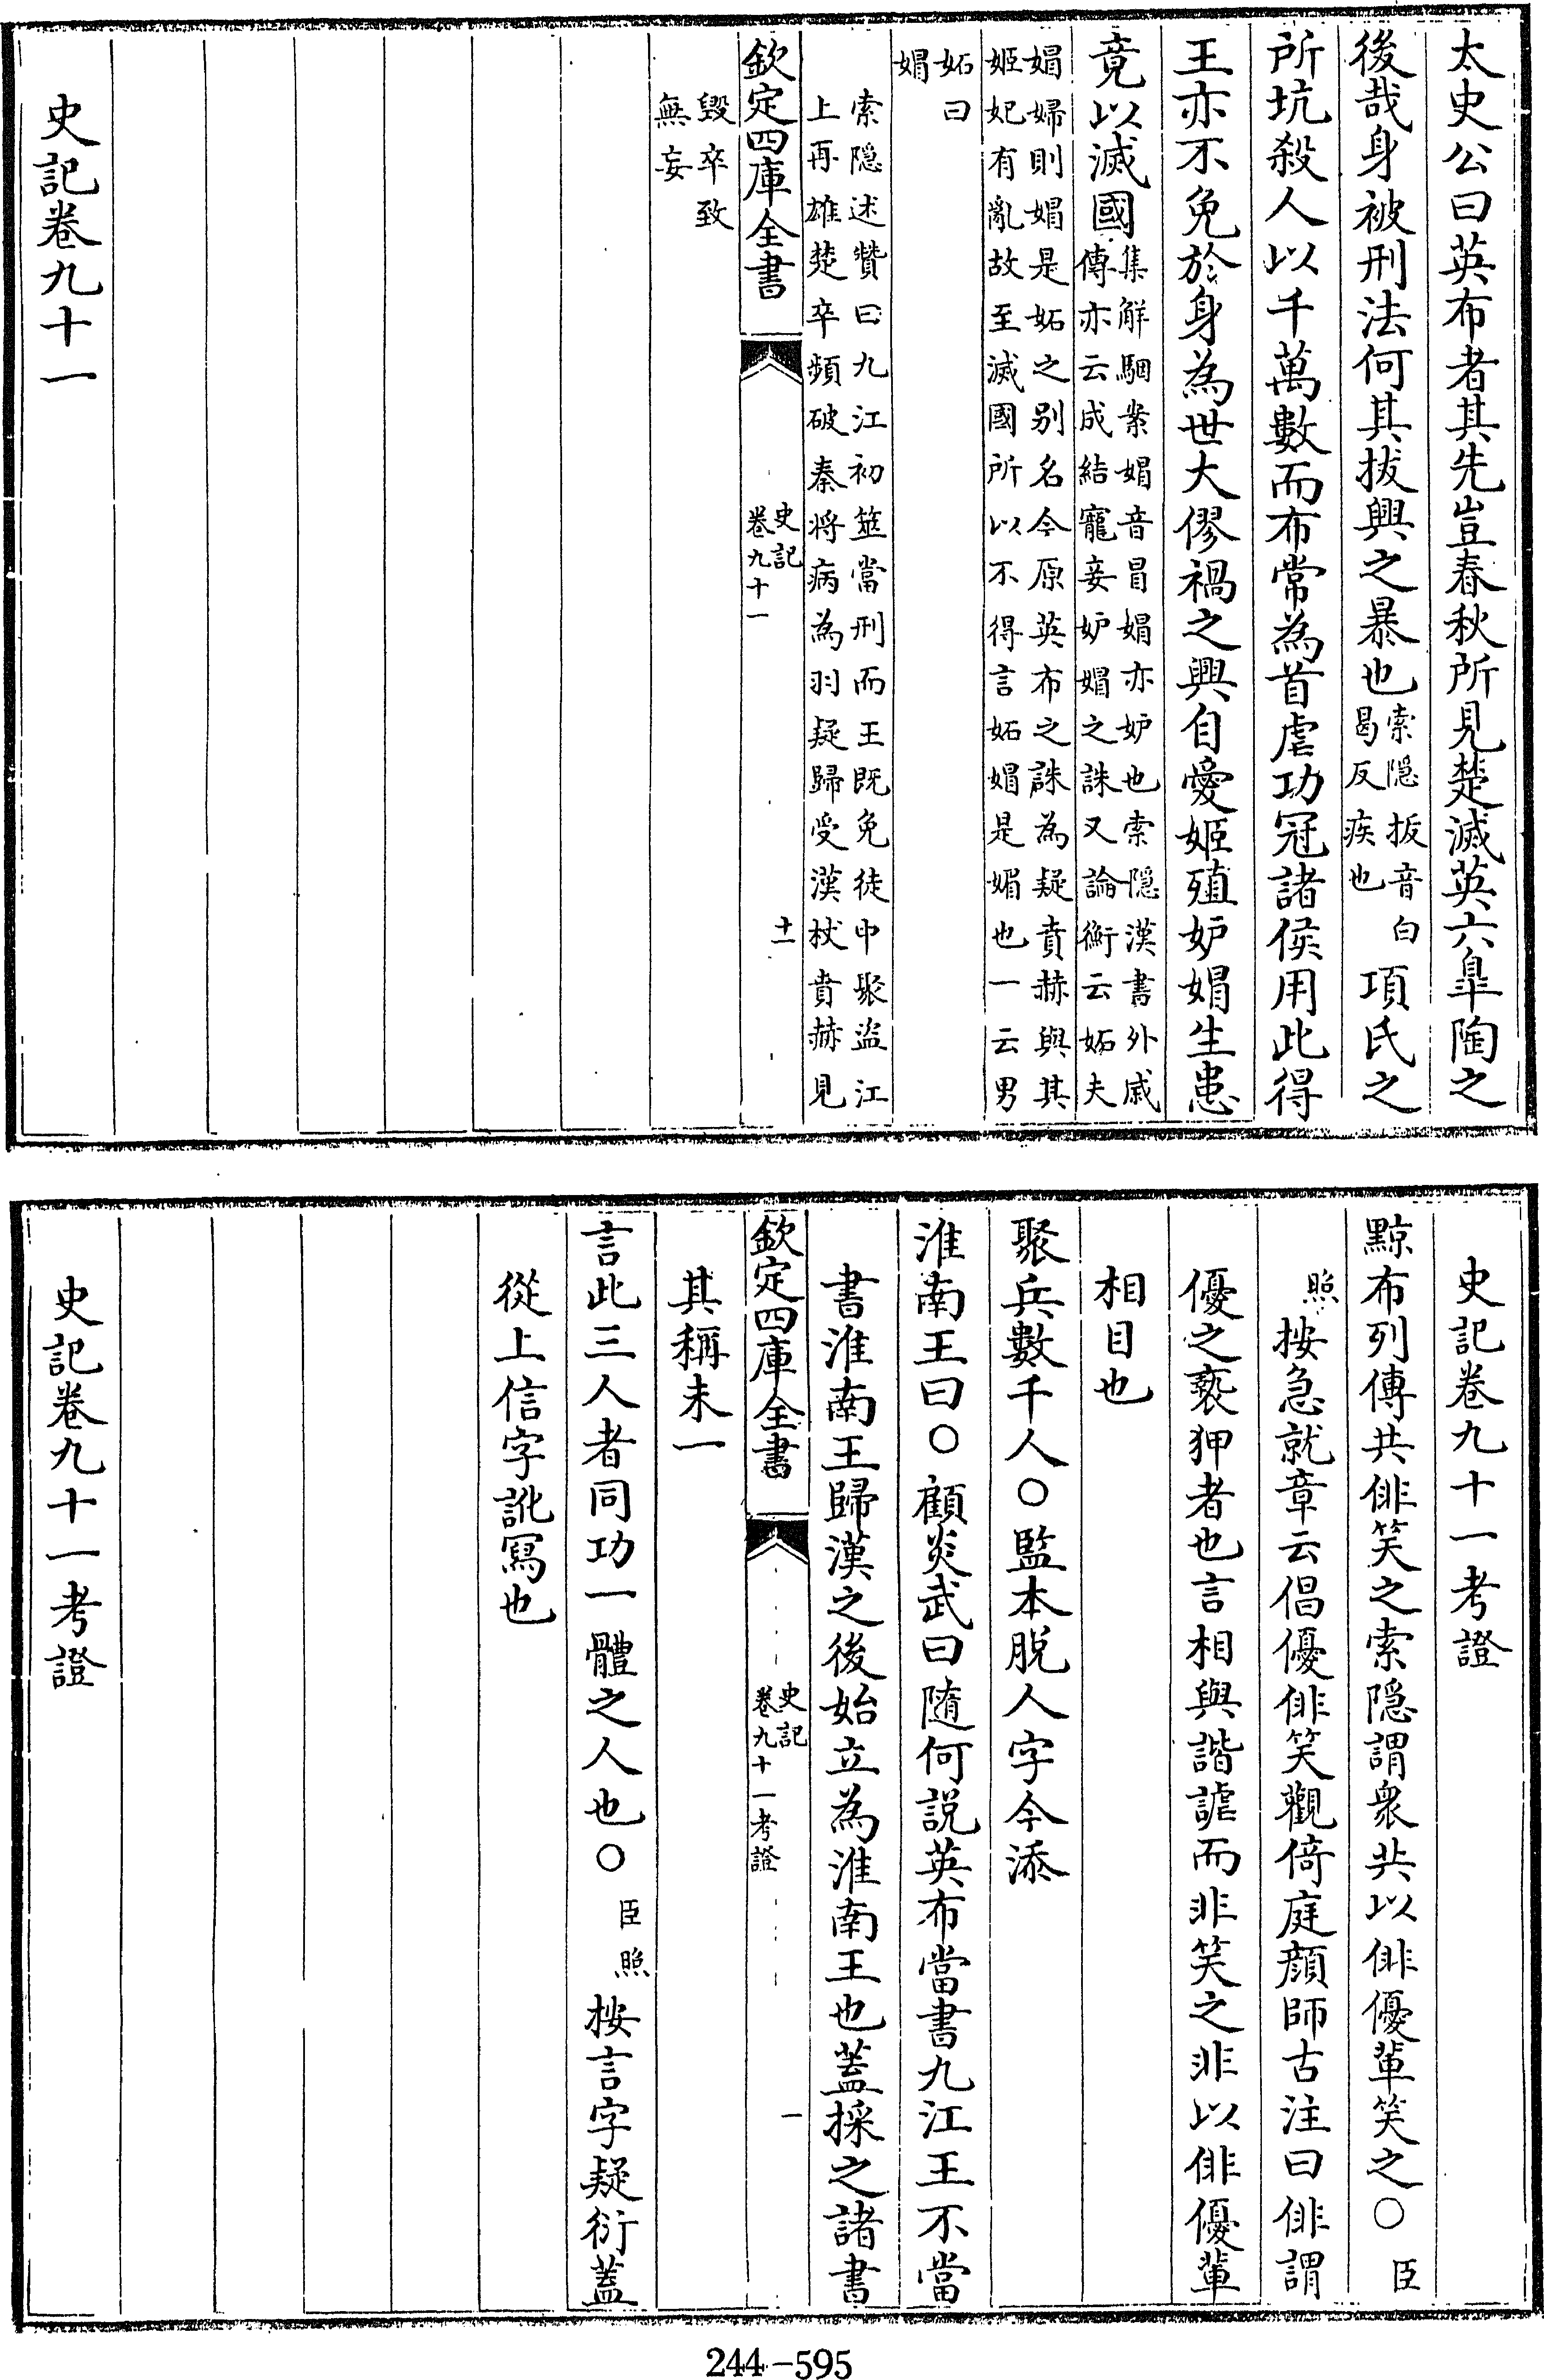 太史公曰英布者其先豈春秋所見楚滅英六臯陶之
後哉身被刑法何其拔興之暴也索隠拔音白曷反疾也項氏之
所坑殺人以千萬數而布常為首虐功冠諸侯用此得
王亦不免於身為世大僇禍之興自愛姬殖妒媢生患
竟以滅國集解駰案媢音冒媢亦妒也索隠漢書外戚
傳亦云成結寵妾妒媢之誅又論衡云妬夫
媢婦則媢是妬之别名今原英布之誅為疑賁赫與其
姬妃有亂故至滅國所以不得言妬媢是媚也一云男
妬曰
媢
索隠述贊曰九江初筮當刑而王既免徒中聚盗江
上再雄楚卒頻破秦將病為羽疑歸受漢杖賁赫見
欽定四庫全書
史記
卷九十一
十一
毁卒致
無妄
史記卷九十一
史記卷九十一考證
黥布列傳共俳笑之索隠謂衆共以俳優輩笑之〇臣
照按急就章云倡優俳笑觀倚庭顔師古注曰俳謂
優之䙝狎者也言相與諧謔而非笑之非以俳優輩
相目也
聚兵數千人〇監本脱人字今添
淮南王曰〇顧炎武曰随何説英布當書九江王不當
書淮南王歸漢之後始立為淮南王也蓋採之諸書
欽定四庫全書
史記
卷九十一考證
一
其稱未一
言此三人者同功一體之人也〇臣照按言字疑衍蓋
從上信字訛寫也
史記卷九十一考證
244-595